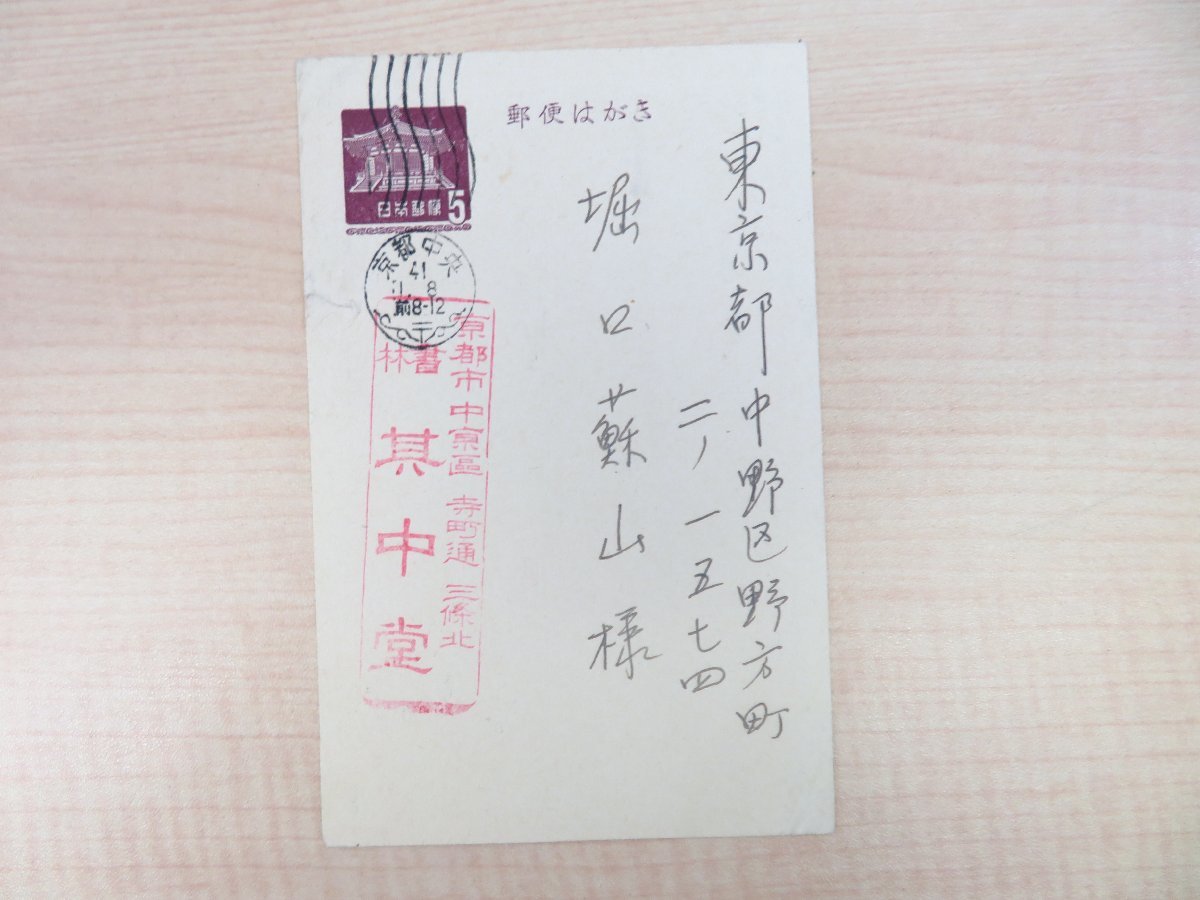 郵便はがき
東京都中野区野方町
二ノ一五七四
堀口蘇山様
日本郵便
5
京都中央
41
11. 8
前8-12
京都市中京區寺町通三條北
書林
其中堂